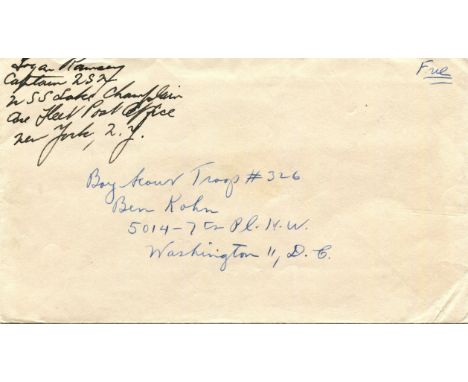 Logan Ramsey
Captain USN
USS Lake Champlain
c/o Fleet Post Office
New York, N.Y.
Free
Boy Scout Troop #326
Ben Kohn
5014-7th Pl. N.W.
Washington 11, D.C.